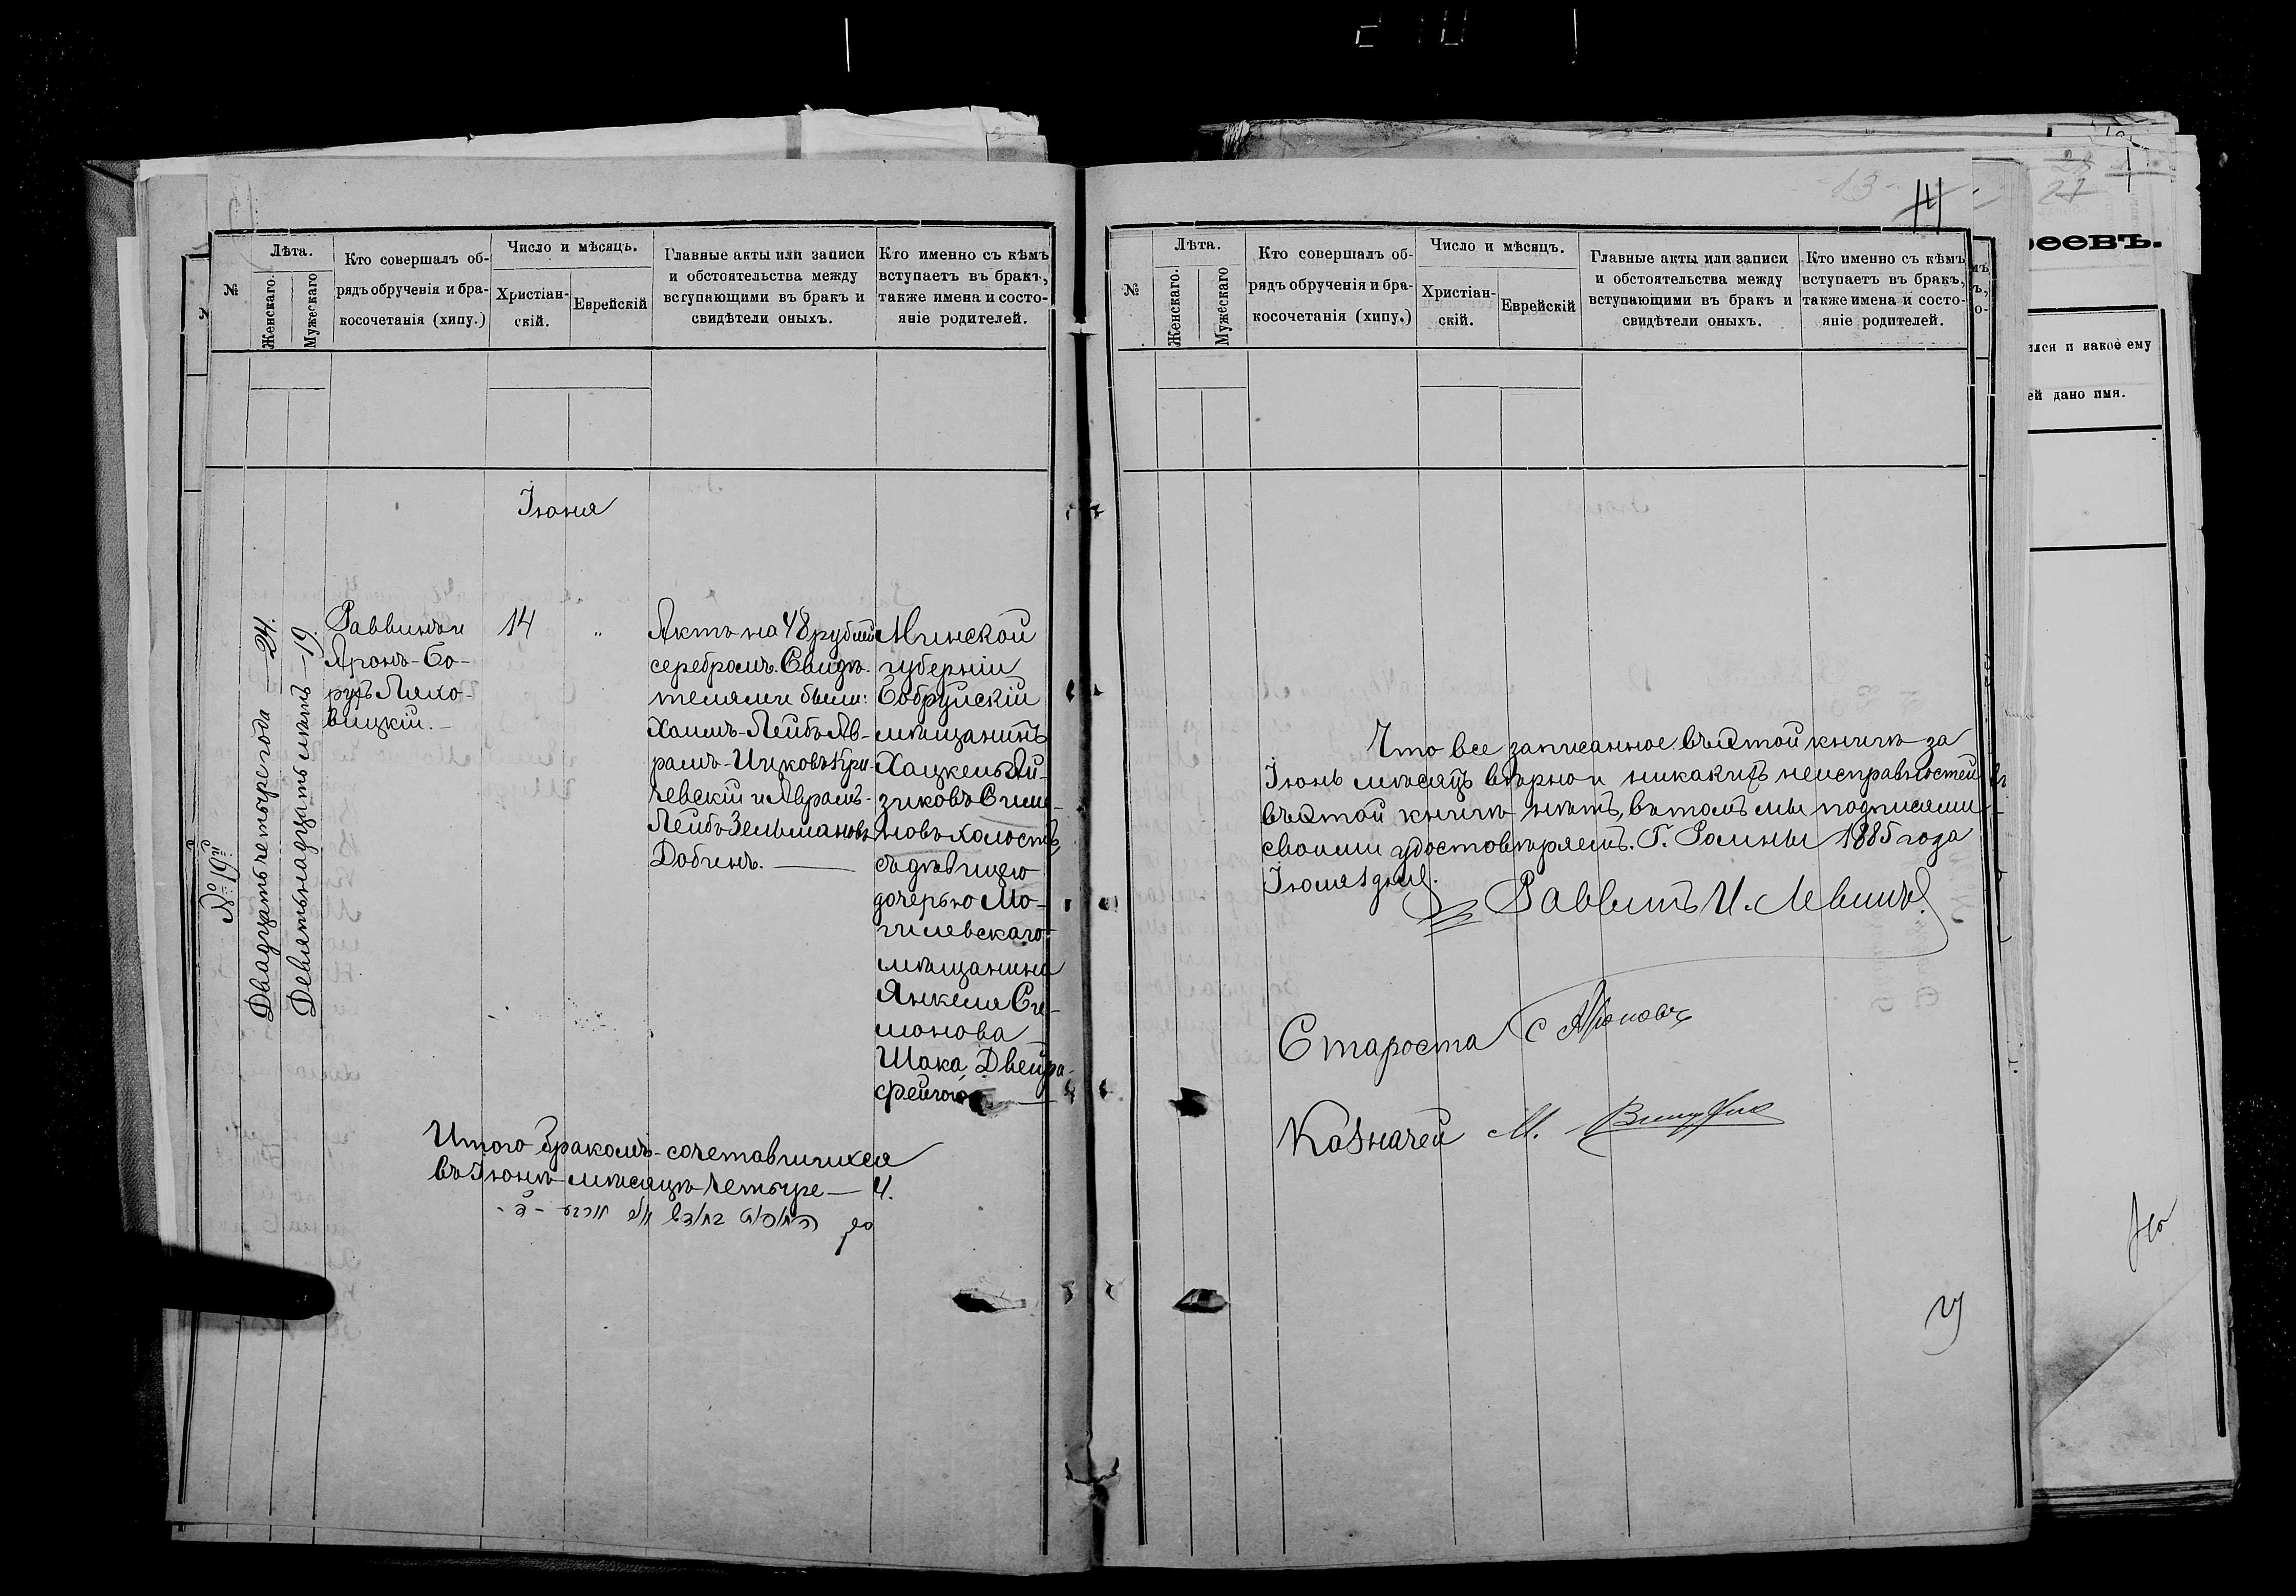 №
Лѣта.
Женскаго.
Мужескаго
Кто совершалъ об-
рядъ обрученія и бра-
косочетанія (хипу.)
Число и мѣсяцъ.
Христіан-
скій.
Еврейскій
Главные акты или записи
и обстоятельства между
вступающими въ бракъ и
свидѣтели оныхъ.
Кто именно съ кѣмъ
вступаетъ въ бракъ,
также имена и состо-
яніе родителей.
Іюня
№ 19й
Двадцать четыре года — 24.
Девятьнадцать лѣтъ — 19.
Раввинъ и
Аронъ-Бо-
рухъ Ляхо-
вицкій. —
14
"
Актъ на 48 рублей
серебромъ. Свидѣ-
телями были:
Хаимъ-Лейбъ Ав-
рамъ-Ицковъ Кри-
чевскій и Аврамъ-
Лейбъ Зельмановъ
Добинъ. —
Минской
губерніи
Бобруйскій
мѣщанинъ
Хацкель Ай-
зиковъ Симо-
новъ холостъ,
съ дѣвицею
дочерью Мо-
гилевскаго
мѣщанина
Янкеля Си-
монова
Шака, Двейра-
Фейгою —
Итого бракомъ-сочетавшихся
въ Іюнѣ мѣсяцѣ четыре — 4.
13
14
№
Лѣта.
Женскаго.
Мужескаго
Кто совершалъ об-
рядъ обрученія и бра-
косочетанія (хипу.)
Число и мѣсяцъ.
Христіан-
скій.
Еврейскій
Главные акты или записи
и обстоятельства между
вступающими въ бракъ и
свидѣтели оныхъ.
Кто именно съ кѣмъ
вступаетъ въ бракъ,
также имена и состо-
яніе родителей.
Что все записанное въ этой книгѣ за
Іюнь мѣсяцъ вѣрно и никакихъ неисправностей
въ этой книгѣ нѣтъ, въ томъ мы подписями
своими удостовѣряемъ. Г. Ромны 1885 года
Іюля 1 дня.
Раввинъ И. Левинъ
Староста С
Казначей М.
27
еевъ.
ился и какое ему
ей дано имя.